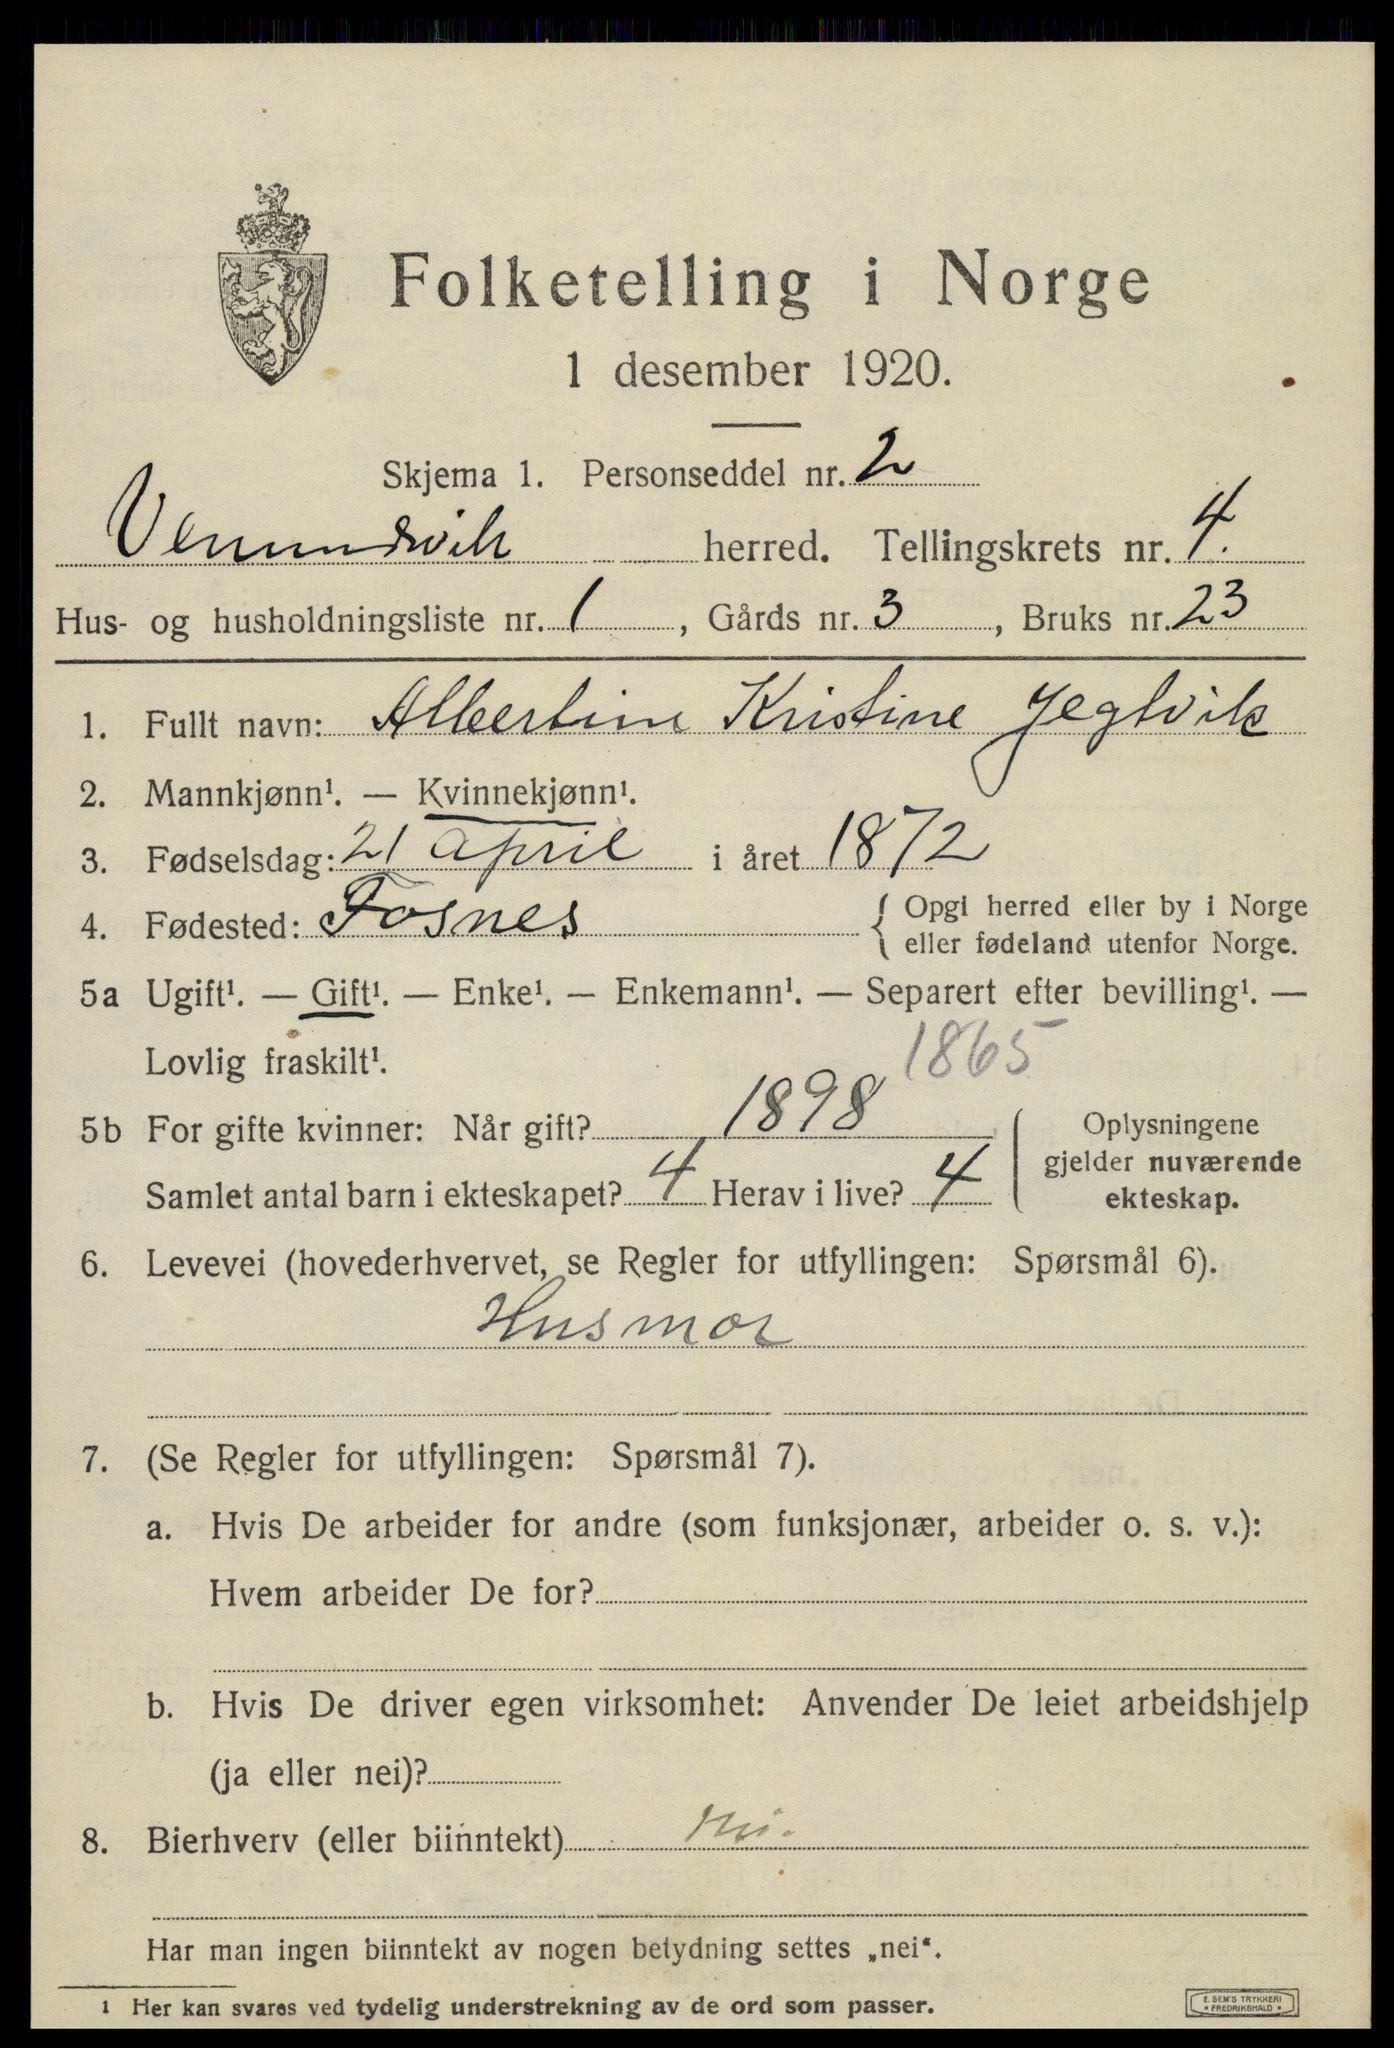 Folketelling i Norge
1 desember 1920.
Skjema 1. Personseddel nr. 2
Vemundvik herred. Tellingskrets nr. 4.
Hus- og husholdningsliste nr. 1, Gårds nr. 3, Bruks nr. 23
1. Fullt navn: Albertine Kristine Jegtvik
2. Mannkjønn¹. — Kvinnekjønn¹.
3. Fødselsdag: 21 april i året 1872
4. Fødested: Fosnes { Opgi herred eller by i Norge
eller fødeland utenfor Norge.
5a Ugift¹. — Gift¹. — Enke¹. — Enkemann¹. — Separert efter bevilling¹. —
Lovlig fraskilt¹. 1865
5b For gifte kvinner: Når gift? 1898 Oplysningene
gjelder nuværende
Samlet antal barn i ekteskapet? 4 Herav i live? 4 ekteskap.
6. Levevei (hovederhvervet, se Regler for utfyllingen: Spørsmål 6).
Husmor
7. (Se Regler for utfyllingen: Spørsmål 7).
a. Hvis De arbeider for andre (som funksjonær, arbeider o. s. v.):
Hvem arbeider De for?
b. Hvis De driver egen virksomhet: Anvender De leiet arbeidshjelp
(ja eller nei)?
8. Bierhverv (eller biinntekt) nei.
Har man ingen biinntekt av nogen betydning settes „nei“.
1 Her kan svares ved tydelig understrekning av de ord som passer.
E. SEM'S TRYKKERI
• FREDRIKSHALD •